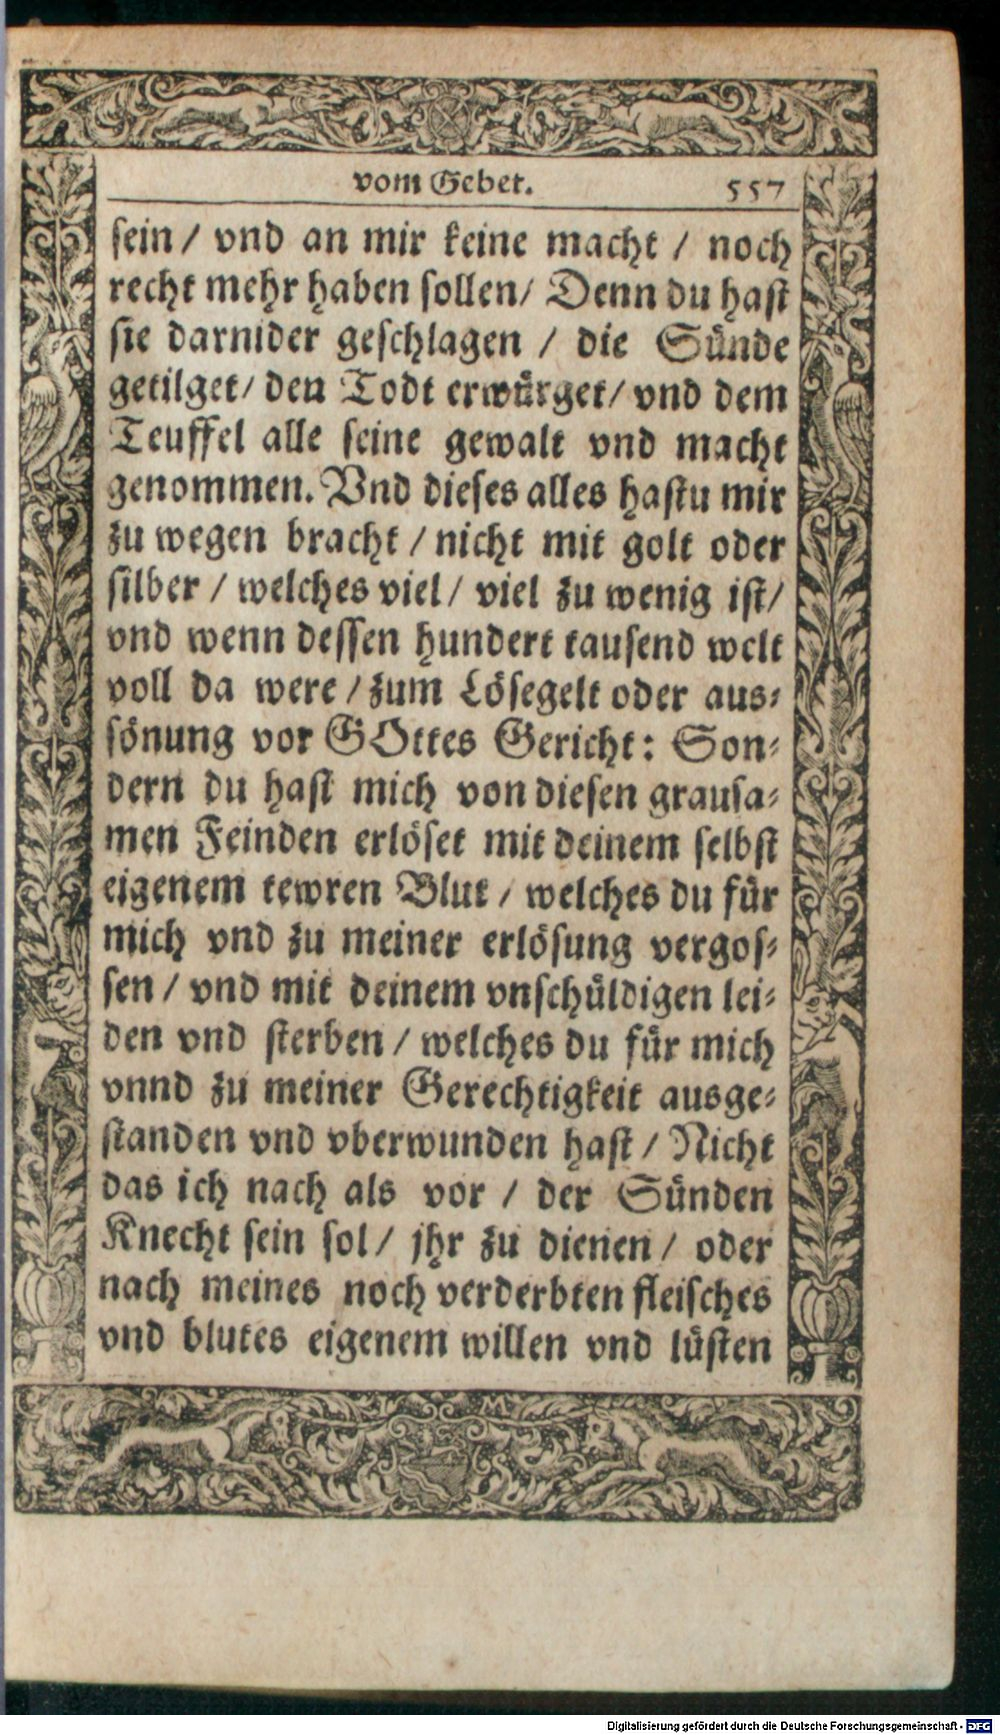 vom Gebet. 557
sein / vnd an mir keine macht / noch
recht mehr haben sollen / Denn du hast
sie darnider geschlagen / die Sünde
getilget / den Todt erwürget / vnd dem
Teuffel alle seine gewalt vnd macht
genommen. Vnd dieses alles hastu mir
zu wegen bracht / nicht mit golt oder
silber / welches viel / viel zu wenig ist /
vnd wenn dessen hundert tausend welt
voll da were / zum Lösegelt oder aus-
sönung vor GOttes Gericht: Son-
dern du hast mich von diesen grausa-
men Feinden erlöset mit deinem selbst
eigenem tewren Blut / welches du für
mich vnd zu meiner erlösung vergos-
sen / vnd mit deinem vnschüldigen lei-
den vnd sterben / welches du für mich
vnnd zu meiner Gerechtigkeit ausge-
standen vnd vberwunden hast / Nicht
das ich nach als vor / der Sünden
Knecht sein sol / jhr zu dienen / oder
nach meines noch verderbten fleisches
vnd blutes eigenem willen vnd lüsten
M
Digitalisierung gefördert durch die Deutsche Forschungsgemeinschaft - DFG